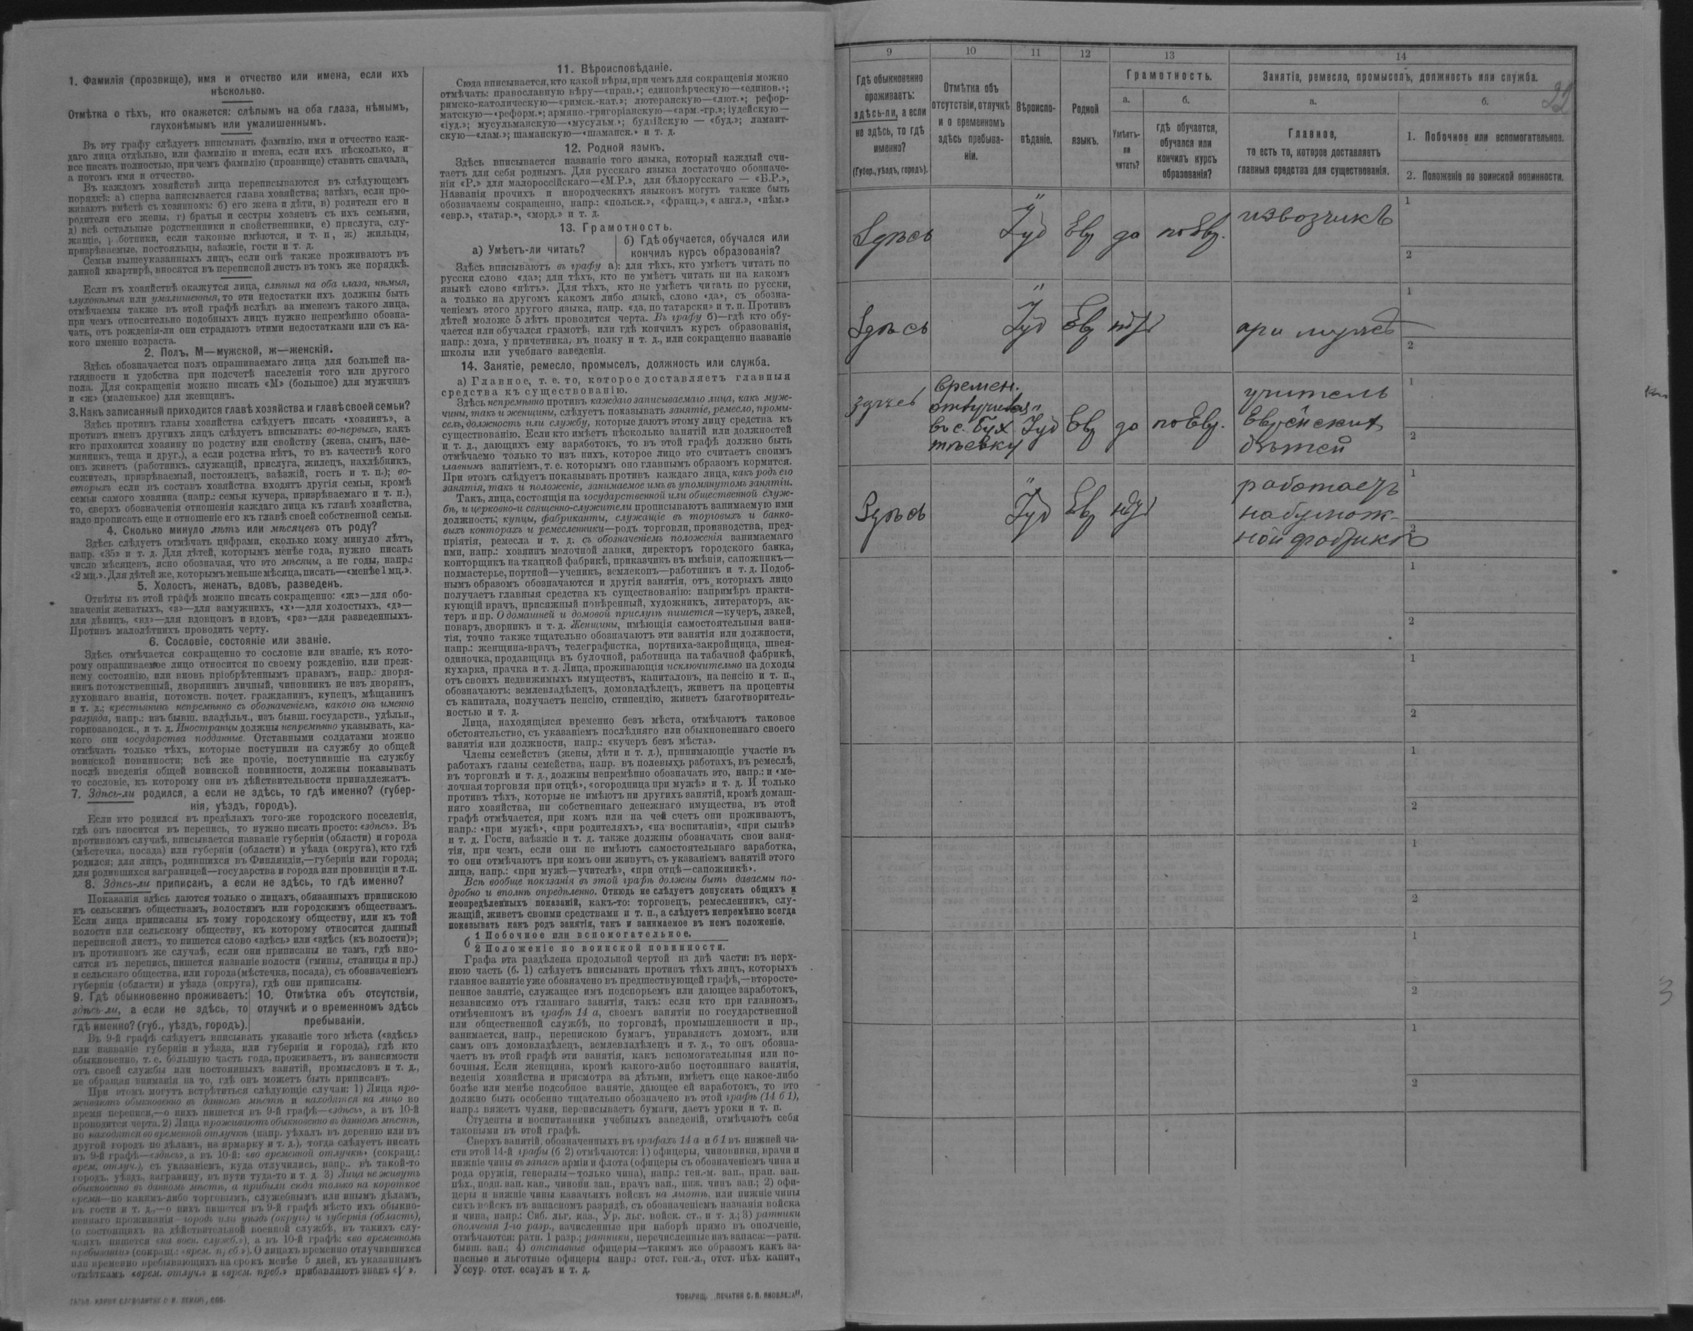 1. Фамилія (прозвище), имя и отчество или имена, если ихъ
нѣсколько.
Отмѣтка о тѣхъ, кто окажется: слѣпымъ на оба глаза, нѣмымъ,
глухонѣмымъ или умалишеннымъ.
Въ эту графу слѣдуетъ вписывать фамилію, имя и отчество каж-
даго лица отдѣльно, или фамилію и имена, если ихъ нѣсколько, и
все писать полностью, при чемъ фамилію (прозвище) ставить сначала,
а потомъ имя и отчество.
Въ каждомъ хозяйствѣ лица переписываются въ слѣдующемъ
порядкѣ: а) сперва записывается глава хозяйства; затѣмъ, если про-
живаютъ вмѣстѣ съ хозяиномъ: б) его жена и дѣти, в) родители его и
родители его жены, г) братья и сестры хозяевъ съ ихъ семьями,
д) всѣ остальные родственники и свойственники, е) прислуга, слу-
жащіе, работники, если таковые имѣются, и т. п., ж) жильцы,
призрѣваемые, постояльцы, заѣзжіе, гости и т. д.
Семьи вышеуказанныхъ лицъ, если онѣ также проживаютъ въ
данной квартирѣ, вносятся въ переписной листъ въ томъ же порядкѣ.
Если въ хозяйствѣ окажутся лица, слѣпыя на оба глаза, нѣмыя,
глухонѣмыя или умалишенныя, то эти недостатки ихъ должны быть
отмѣчаемы также въ этой графѣ вслѣдъ за именемъ такого лица,
при чемъ относительно подобныхъ лицъ нужно непремѣнно обозна-
чать, отъ рожденія-ли они страдаютъ этими недостатками или съ ка-
кого именно возраста.
2. Полъ. М—мужской, ж—женскій.
Здѣсь обозначается полъ опрашиваемаго лица для большей на-
глядности и удобства при подсчетѣ населенія того или другого
пола. Для сокращенія можно писать «М» (большое) для мужчинъ
и «ж» (маленькое) для женщинъ.
3. Какъ записанный приходится главѣ хозяйства и главѣ своей семьи?
Здѣсь противъ главы хозяйства слѣдуетъ писать «хозяинъ», а
противъ именъ другихъ лицъ слѣдуетъ вписывать: во-первыхъ, какъ
кто приходится хозяину по родству или свойству (жена, сынъ, пле-
мянникъ, теща и друг.), а если родства нѣтъ, то въ качествѣ кого
онъ живетъ (работникъ, служащій, прислуга, жилецъ, нахлѣбникъ,
сожитель, призрѣваемый, постоялецъ, заѣзжій, гость и т. п.); во-
вторыхъ если въ составъ хозяйства входятъ другія семьи, кромѣ
семьи самого хозяина (напр.: семья кучера, призрѣваемаго и т. п.),
то, сверхъ обозначенія отношенія каждаго лица къ главѣ хозяйства,
надо прописать еще и отношеніе его къ главѣ своей собственной семьи.
4. Сколько минуло лѣтъ или мѣсяцевъ отъ роду?
Здѣсь слѣдуетъ отмѣчать цифрами, сколько кому минуло лѣтъ,
напр. «35» и т. д. Для дѣтей, которымъ менѣе года, нужно писать
число мѣсяцевъ, ясно обозначая, что это мѣсяцы, а не годы, напр.:
«2 мц.». Для дѣтей же, которымъ меньше мѣсяца, писать—«менѣе 1 мц.».
5. Холостъ, женатъ, вдовъ, разведенъ.
Отвѣты въ этой графѣ можно писать сокращенно: «ж»—для обо-
значенія женатыхъ, «з»—для замужнихъ, «х»—для холостыхъ, «д»—
для дѣвицъ, «вд»—для вдовцовъ и вдовъ, «рз»—для разведенныхъ.
Противъ малолѣтнихъ проводить черту.
6. Сословіе, состояніе или званіе.
Здѣсь отмѣчается сокращенно то сословіе или званіе, къ кото-
рому опрашиваемое лицо относится по своему рожденію, или преж-
нему состоянію, или вновь пріобрѣтеннымъ правамъ, напр.: дворя-
нинъ потомственный, дворянинъ личный, чиновникъ не изъ дворянъ,
духовнаго званія, потомств. почет. гражданинъ, купецъ, мѣщанинъ
и т. д.; крестьянинъ непремѣнно съ обозначеніемъ, какого онъ именно
разряда, напр.: изъ бывш. владѣльч., изъ бывш. государств., удѣльн.,
горнозаводск., и т. д. Иностранцы должны непремѣнно указывать, ка-
кого они государства подданные. Отставными солдатами можно
отмѣчать только тѣхъ, которые поступили на службу до общей
воинской повинности; всѣ же прочіе, поступившіе на службу
послѣ введенія общей воинской повинности, должны показывать
то сословіе, къ которому они въ дѣйствительности принадлежатъ.
7. Здѣсь-ли родился, а если не здѣсь, то гдѣ именно? (губер-
нія, уѣздъ, городъ).
Если кто родился въ предѣлахъ того-же городского поселенія,
гдѣ онъ вносится въ перепись, то нужно писать просто: «здѣсь». Въ
противномъ случаѣ, вписывается названіе губерніи (области) и города
(мѣстечка, посада) или губерніи (области) и уѣзда (округа), кто гдѣ
родился; для лицъ, родившихся въ Финляндіи,—губерніи или города;
для родившихся заграницей—государства и города или провинціи и т.п.
8. Здѣсь-ли приписанъ, а если не здѣсь, то гдѣ именно?
Показанія здѣсь даются только о лицахъ, обязанныхъ припискою
къ сельскимъ обществамъ, волостямъ или городскимъ обществамъ.
Если лица приписаны къ тому городскому обществу, или къ той
волости или сельскому обществу, къ которому относится данный
переписной листъ, то пишется слово «здѣсь» или «здѣсь (къ волости)»;
въ противномъ же случаѣ, если они приписаны не тамъ, гдѣ вно-
сятся въ перепись, пишется названіе волости (гмины, станицы и пр.)
и сельскаго общества, или города (мѣстечка, посада), съ обозначеніемъ
губерніи (области) и уѣзда (округа), гдѣ они приписаны.
9. Гдѣ обыкновенно проживаетъ:
здѣсь-ли, а если не здѣсь, то
гдѣ именно? (губ., уѣздъ, городъ).
10. Отмѣтка объ отсутствіи,
отлучкѣ и о временномъ здѣсь
пребываніи.
Въ 9-й графѣ слѣдуетъ вписывать указаніе того мѣста («здѣсь»
или названіе губерніи и уѣзда, или губерніи и города), гдѣ кто
обыкновенно, т. е. большую часть года, проживаетъ, въ зависимости
отъ своей службы или постоянныхъ занятій, промысловъ и т. д.,
не обращая вниманія на то, гдѣ онъ можетъ быть приписанъ.
При этомъ могутъ встрѣтиться слѣдующіе случаи: 1) Лица про-
живаютъ обыкновенно въ данномъ мѣстѣ и находятся на лицо во
время переписи,—о нихъ пишется въ 9-й графѣ—«здѣсь», а въ 10-й
проводится черта. 2) Лица проживаютъ обыкновенно въ данномъ мѣстѣ,
но находятся во временной отлучкѣ (напр. уѣхалъ въ деревню или въ
другой городъ по дѣламъ, на ярмарку и т. д.), тогда слѣдуетъ писать
въ 9-й графѣ—«здѣсь», а въ 10-й: «во временной отлучкѣ» (сокращ.:
врем. отлуч.), съ указаніемъ, куда отлучились, напр., въ такой-то
городъ, уѣздъ, заграницу, въ пути туда-то и т. д. 3) Лица не живутъ
обыкновенно въ данномъ мѣстѣ, а прибыли сюда только на короткое
время—по какимъ-либо торговымъ, служебнымъ или инымъ дѣламъ,
въ гости и т. д.,—о нихъ пишется въ 9-й графѣ мѣсто ихъ обыкно-
веннаго проживанія—городъ или уѣздъ (округъ) и губернія (область),
(о состоящихъ на дѣйствительной военной службѣ, въ такихъ слу-
чаяхъ пишется «на воен. службѣ»), а въ 10-й графѣ: «во временномъ
пребываніи» (сокращ.: «врем. преб.»). О лицахъ временно отлучившихся
или временно пребывающихъ на срокъ менѣе 5 дней, къ указаннымъ
отмѣткамъ «врем. отлуч.» и «врем. преб.» прибавляютъ знакъ «V».
11. Вѣроисповѣданіе.
Сюда вписывается, кто какой вѣры, при чемъ для сокращенія можно
отмѣчать: православную вѣру—«прав.»; единовѣрческую—«единов.»;
римско-католическую—«римск.-кат.»; лютеранскую—«лют.»; рефор-
матскую—«реформ.»; армяно-григоріанскую—«арм.-гр.»; іудейскую—
«іуд.»; мусульманскую—«мусульм.»; буддійскую — «буд.»; ламаит-
скую—«лам.»; шаманскую—«шаманск.» и т. д.
12. Родной языкъ.
Здѣсь вписывается названіе того языка, который каждый счи-
таетъ для себя роднымъ. Для русскаго языка достаточно обозначе-
нія «Р.» для малороссійскаго—«М.Р.», для бѣлорусскаго — «Б.Р.»,
Названія прочихъ и инородческихъ языковъ могутъ также быть
обозначаемы сокращенно, напр.: «польск.», «франц.», «англ.», «нѣм.»
«евр.», «татар.», «морд.» и т. д.
13. Грамотность.
а) Умѣетъ-ли читать?
б) Гдѣ обучается, обучался или
кончилъ курсъ образованія?
Здѣсь вписываютъ въ графу а): для тѣхъ, кто умѣетъ читать по
русски слово «да»; для тѣхъ, кто не умѣетъ читать ни на какомъ
языкѣ слово «нѣтъ». Для тѣхъ, кто не умѣетъ читать по русски,
а только на другомъ какомъ либо языкѣ, слово «да», съ обозна-
ченіемъ этого другого языка, напр. «да, по татарски» и т. п. Противъ
дѣтей моложе 5 лѣтъ проводится черта. Въ графу б)—гдѣ кто обу-
чается или обучался грамотѣ, или гдѣ кончилъ курсъ образованія,
напр.: дома, у причетника, въ полку и т. д., или сокращенно названіе
школы или учебнаго заведенія.
14. Занятіе, ремесло, промыселъ, должность или служба.
а) Главное, т. е. то, которое доставляетъ главныя
средства къ существованію.
Здѣсь непремѣнно противъ каждаго записываемаго лица, какъ муж-
чины, такъ и женщины, слѣдуетъ показывать занятіе, ремесло, промы-
селъ, должность или службу, которые даютъ этому лицу средства къ
существованію. Если кто имѣетъ нѣсколько занятій или должностей
и т. д., дающихъ ему заработокъ, то въ этой графѣ должно быть
отмѣчаемо только то изъ нихъ, которое лицо это считаетъ своимъ
главнымъ занятіемъ, т. е. которымъ оно главнымъ образомъ кормится.
При этомъ слѣдуетъ показывать противъ каждаго лица, какъ родъ его
занятія, такъ и положеніе, занимаемое имъ въ упомянутомъ занятіи.
Такъ, лица, состоящія на государственной или общественной служ-
бѣ, и церковно-и священно-служители прописываютъ занимаемую ими
должность; купцы, фабриканты, служащіе въ торговыхъ и банко-
выхъ конторахъ и ремесленники—родъ торговли, производства, пред-
пріятія, ремесла и т. д. съ обозначеніемъ положенія занимаемаго
ими, напр.: хозяинъ мелочной лавки, директоръ городского банка,
конторщикъ на ткацкой фабрикѣ, приказчикъ въ имѣніи, сапожникъ—
подмастерье, портной—ученикъ, землекопъ—работникъ и т. д. Подоб-
нымъ образомъ обозначаются и другія занятія, отъ которыхъ лицо
получаетъ главныя средства къ существованію: напримѣръ практи-
кующій врачъ, присяжный повѣренный, художникъ, литераторъ, ак-
теръ и пр. О домашней и домовой прислугѣ пишется—кучеръ, лакей,
поваръ, дворникъ и т. д. Женщины, имѣющія самостоятельныя заня-
тія, точно также тщательно обозначаютъ эти занятія или должности,
напр.: женщина-врачъ, телеграфистка, портниха-закройщица, швея-
одиночка, продавщица въ булочной, работница на табачной фабрикѣ,
кухарка, прачка и т. д. Лица, проживающія исключительно на доходы
отъ своихъ недвижимыхъ имуществъ, капиталовъ, на пенсію и т. п.,
обозначаютъ: землевладѣлецъ, домовладѣлецъ, живетъ на проценты
съ капитала, получаетъ пенсію, стипендію, живетъ благотворитель-
ностью и т. д.
Лица, находящіяся временно безъ мѣста, отмѣчаютъ таковое
обстоятельство, съ указаніемъ послѣдняго или обыкновеннаго своего
занятія или должности, напр.: «кучеръ безъ мѣста».
Члены семействъ (жены, дѣти и т. д.), принимающіе участіе въ
работахъ главы семейства, напр. въ полевыхъ работахъ, въ ремеслѣ,
въ торговлѣ и т. д., должны непремѣнно обозначать это, напр.: и «ме-
лочная торговля при отцѣ», «огородница при мужѣ» и т. д. И только
противъ тѣхъ, которые не имѣютъ ни другихъ занятій, кромѣ домаш-
няго хозяйства, ни собственнаго денежнаго имущества, въ этой
графѣ отмѣчается, при комъ или на чей счетъ они проживаютъ,
напр.: «при мужѣ», «при родителяхъ», «на воспитаніи», «при сынѣ»
и т. д. Гости, заѣзжіе и т. д. также должны обозначать свои заня-
тія, при чемъ, если они не имѣютъ самостоятельнаго заработка,
то они отмѣчаютъ при комъ они живутъ, съ указаніемъ занятій этого
лица, напр.: «при мужѣ—учителѣ», «при отцѣ—сапожникѣ».
Всѣ вообще показанія въ этой графѣ должны быть даваемы по-
дробно и вполнѣ опредѣленно. Отнюдь не слѣдуетъ допускать общихъ и
неопредѣленныхъ показаній, какъ-то: торговецъ, ремесленникъ, слу-
жащій, живетъ своими средствами и т. п., а слѣдуетъ непремѣнно всегда
показывать какъ родъ занятія, такъ и занимаемое въ немъ положеніе.
б 1 Побочное или вспомогательное.
2 Положеніе по воинской повинности.
Графа эта раздѣлена продольной чертой на двѣ части: въ верх-
нюю часть (б. 1) слѣдуетъ вписывать противъ тѣхъ лицъ, которыхъ
главное занятіе уже обозначено въ предшествующей графѣ,—второсте-
пенное занятіе, служащее имъ подспорьемъ или дающее заработокъ,
независимо отъ главнаго занятія, такъ: если кто при главномъ,
отмѣченномъ въ графѣ 14 а, своемъ занятіи по государственной
или общественной службѣ, по торговлѣ, промышленности и пр.,
занимается, напр., перепискою бумагъ, управляетъ домомъ, или
самъ онъ домовладѣлецъ, землевладѣлецъ и т. д., то онъ обозна-
чаетъ въ этой графѣ эти занятія, какъ вспомогательныя или по-
бочныя. Если женщина, кромѣ какого-либо постояннаго занятія,
веденія хозяйства и присмотра за дѣтьми, имѣетъ еще какое-либо
болѣе или менѣе подсобное занятіе, дающее ей заработокъ, то это
должно быть особенно тщательно обозначено въ этой графѣ (14 б 1),
напр.: вяжетъ чулки, переписываетъ бумаги, даетъ уроки и т. п.
Студенты и воспитанники учебныхъ заведеній, отмѣчаютъ себя
таковыми въ этой графѣ.
Сверхъ занятій, обозначенныхъ въ графахъ 14 а и б 1 въ нижней ча-
сти этой 14-й графы (б 2) отмѣчаются: 1) офицеры, чиновники, врачи и
нижніе чины въ запасѣ арміи и флота (офицеры съ обозначеніемъ чина и
рода оружія, генералы—только чина), напр.: ген.-м. зап., прап. зап.
пѣх., подп. зап. кав., чиновн зап., врачъ зап., ниж. чинъ зап.; 2) офи-
церы и нижніе чины казачьихъ войскъ на льготѣ, или нижніе чины
сихъ войскъ въ запасномъ разрядѣ, съ обозначеніемъ названія войска
и чина, напр.: Сиб. льг. каз., Ур. льг. войск. ст., и т. д.; 3) ратники
ополченія 1-го разр., зачисленные при наборѣ прямо въ ополченіе,
отмѣчаются: ратн. 1 разр.; ратники, перечисленные изъ запаса:—ратн.
бывш. зап.; 4) отставные офицеры—такимъ же образомъ какъ за-
пасные и льготные офицеры напр.: отст. ген.-л., отст. пѣх. капит.,
Уссур. отст. есаулъ и т. д.
9
10
11
12
13
14
22
Гдѣ обыкновенно
проживаетъ:
здѣсь-ли, а если
не здѣсь, то гдѣ
именно?
(Губер., уѣздъ, городъ).
Отмѣтка объ
отсутствіи, отлучкѣ
и о временномъ
здѣсь пребыва-
ніи.
Вѣроиспо-
вѣданіе.
Родной
языкъ.
Грамотность.
а.
б.
Умѣетъ-
ли
читать?
гдѣ обучается,
обучался или
кончилъ курсъ
образованія?
Занятіе, ремесло, промыселъ, должность или служба.
а.
б.
Главное,
то есть то, которое доставляетъ
главныя средства для существованія.
1. Побочное или вспомогательное.
2. Положеніе по воинской повинности.
Здѣсь Іуд Евр да по Евр. извозчикъ
1
2
Здѣсь Іуд Евр нѣтъ при мужѣ
1
2
здѣсь
времен.
отлучился
въ с. Бух
тѣевку
Іуд Евр да по Евр.
учитель
Еврейскихъ
дѣтей
1
2
Здѣсь Іуд Евр нѣтъ
работаетъ
на бумож-
ной фабрикѣ
1
2
1
2
1
2
1
2
1
2
1
2
1
2
3